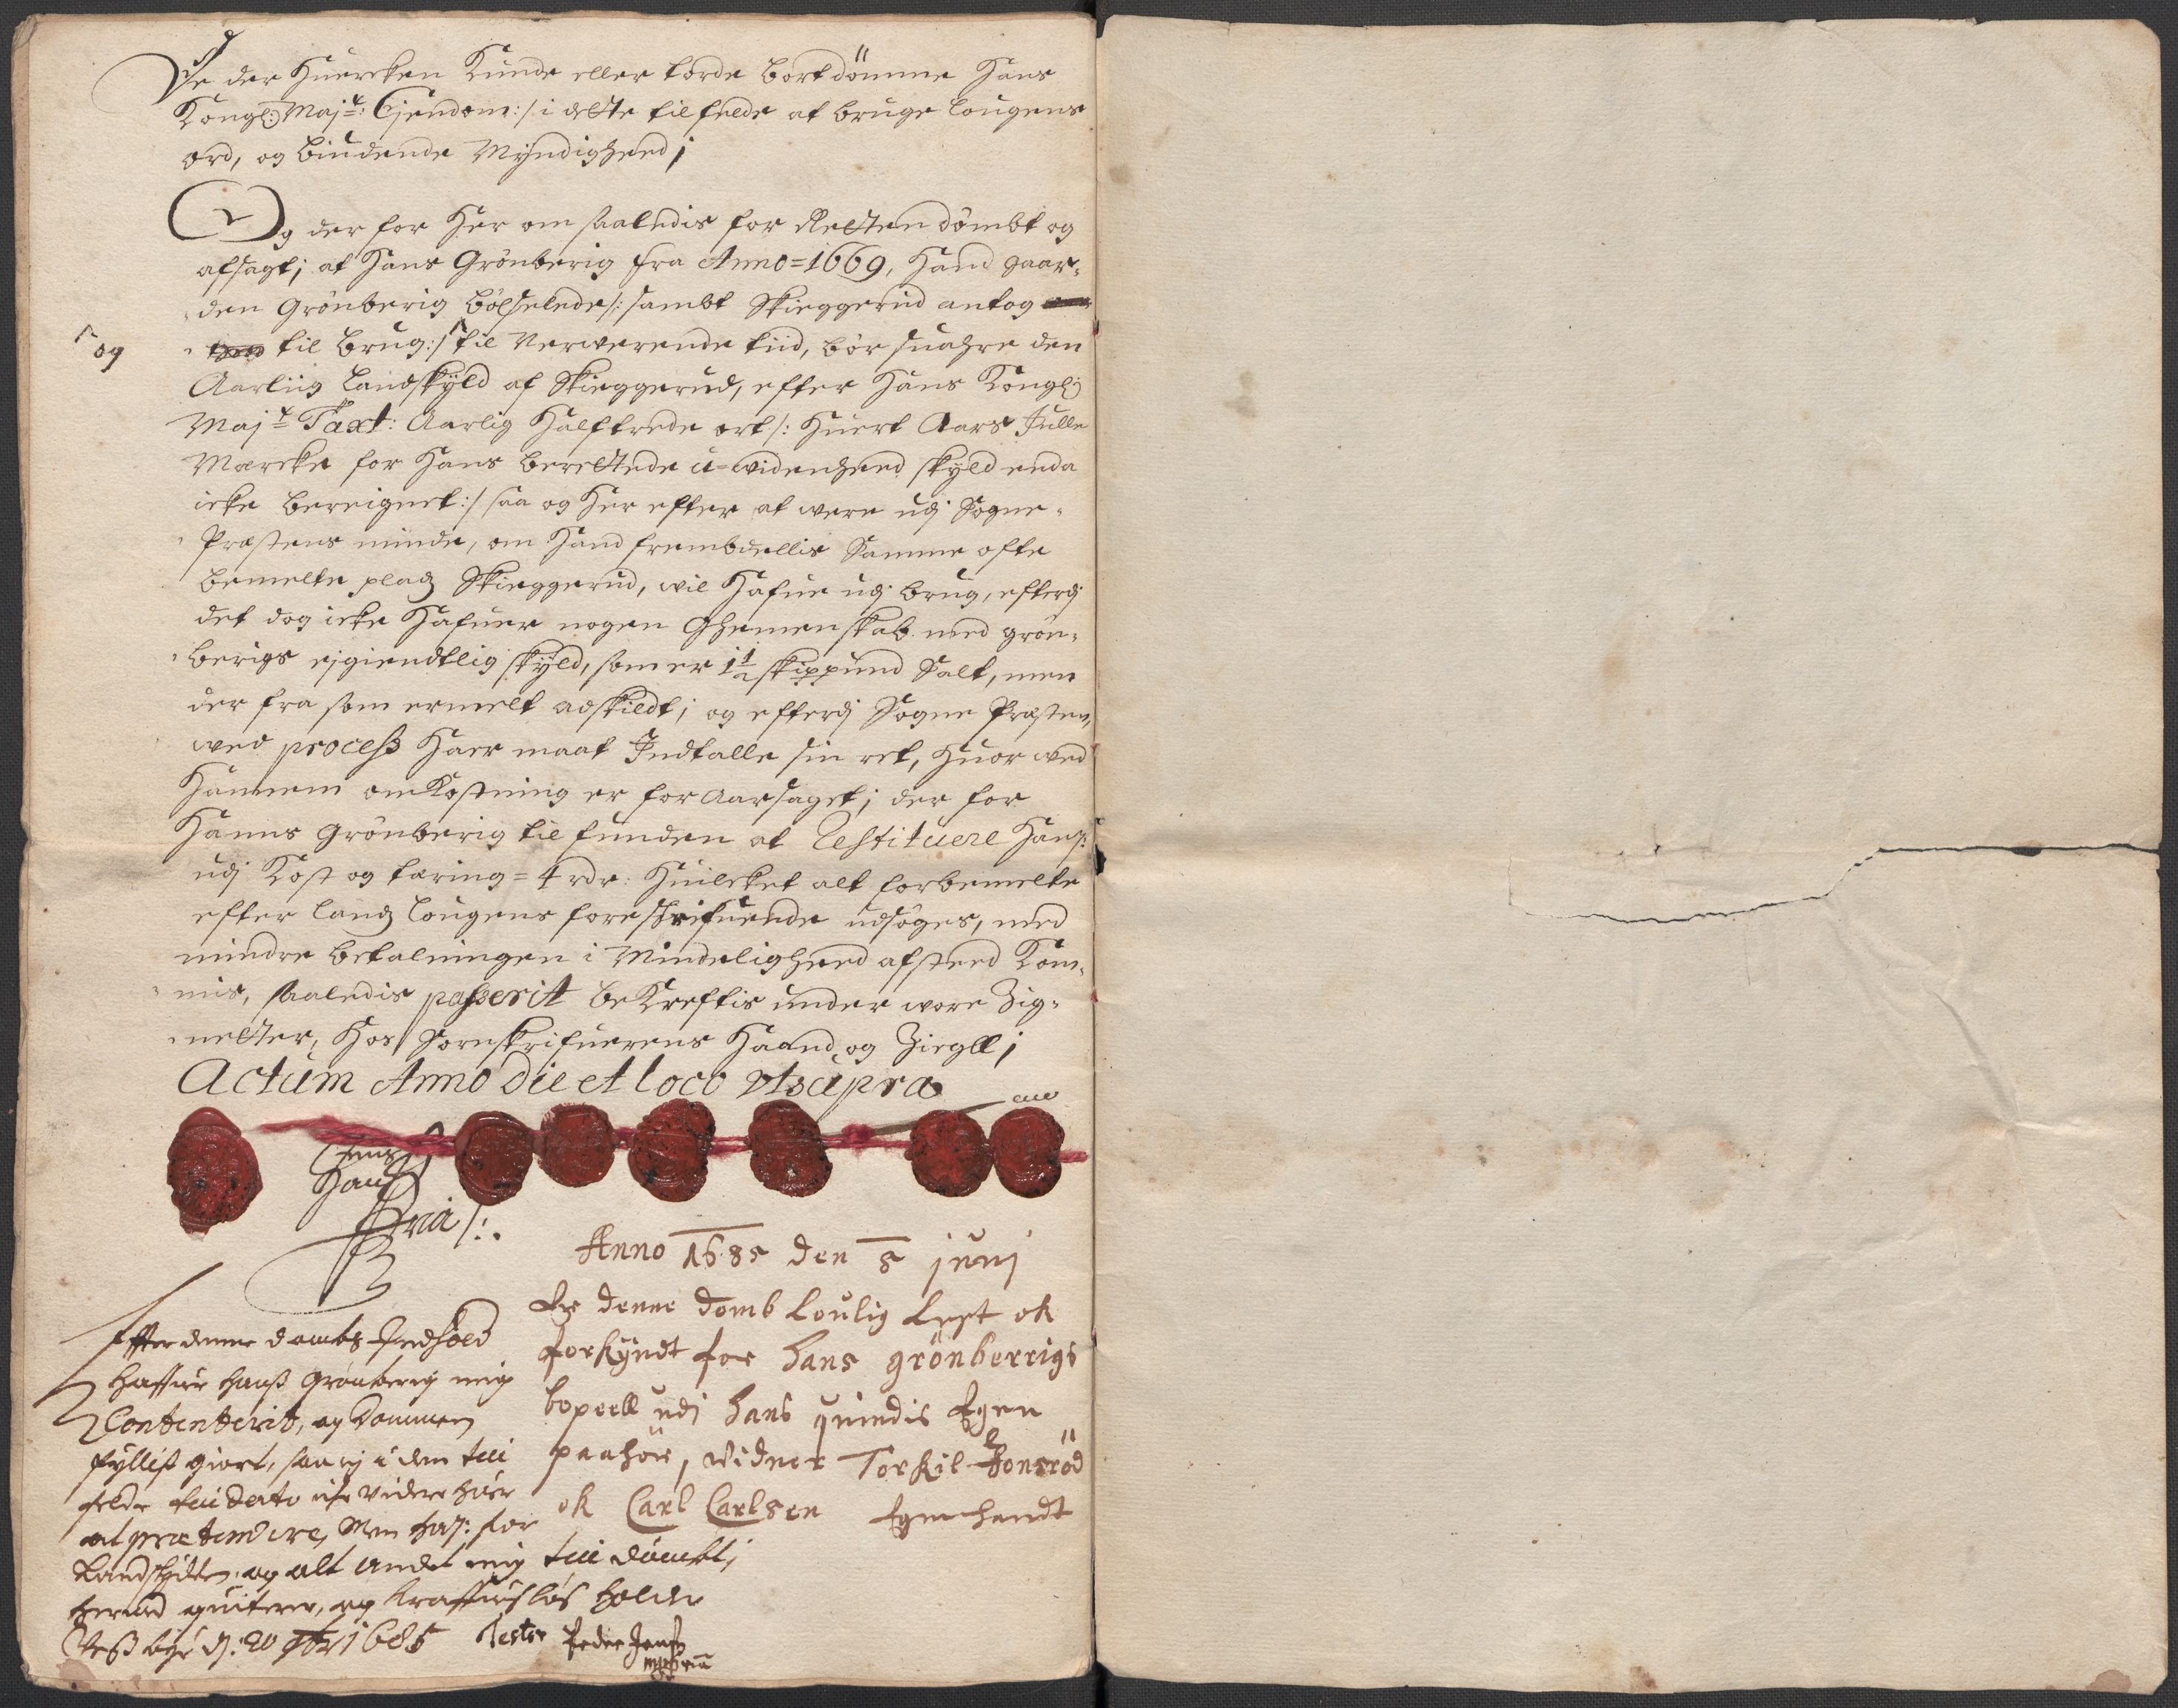 Ve der huercken Kunde eller torde bortdömme Hans
Kongl: Majt: Ejendom:/ i dette tilfelde at bruge lougens
ord, og bindende Myndigheed;
Og der for Her om saaledis for Retten dömbt og
afsagt; at Hans Grönberig fra Anno=1669, Hand Gaar-
den Grönberig böxselede/: sambt Skieggerud antog
til brug:/ til Nerverende tiid, bör suahre den
og
Aarliig landskyld af Skieggerud, efter Hans Kongl:
Majt Taxt: Aarlig halftrede ort/: Huert Aars fulle
Mercke for Hans berettede u=widenheed skyld enda
icke bereignet:/ saa og Her efter at were udj Sogne-
Præstens minde, om Hand frembdellis Samme ofte
bemelte pladz Skieggerud, wil Hafue udj brug, efterdj
det dog icke Hafuer nogen Ghemenskab med grön-
berigs eigiendtlig skyld, som er 1½ skippund Salt, men
der fra som ermelt adskildt; og efterdj Sogne Præsten,
wed process Haer maat Indtalle sin ret, Huor wed
Hannem omKostning er foraarsaget; der for
Hanns Grönberig til funden at Restituere Hans:
udj Kost og tæring = 4 rdr: Huilcket alt forbemelte
efter landz lougens foreskrifuende udsöges, med
mindre betalningen i Mindeligheed afsted Kom-
mis, saaledis passerit beKreftis under wore Zig-
netter, Hos Sornskrifuerens Haand og Ziegll;
Actum Anno Die et loco Utsupra
Jens
Hans
Mria/:
Anno 1685 den 5 junj
Er denne domb loulig lest ok
forkyndt for hans grönberrigs
bopeell udj hans quindis Egen
paahör, vidner Torkil Honsröd
ok Carl Carlsen Egenhendt
Effter denne dombs Indhold
haffuer hanß Grönberig mig
Contenterit, og Dommen
fyllist giort, saa ej i den till
felde till dato icke videre haer
at prætendere, Men haß: for
Landskylden, og alt andet mig till dömbt;
hermed quiterer, og kraffuesløs holder
Vesbye dj: 20 1685 Testor Peder Jensß
mppria